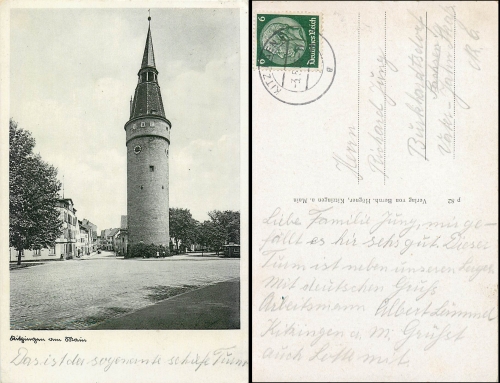 Kitzingen am Main
Das ist der sogenante schiefe Turm
6 Deutsches Reich 6
KITZ
Herrn
Richard Jung
Burkhardtsdorf
p 52 Verlag von Bernh. Högner, Kitzingen a. Main
Liebe Familie Jung, mir ge-
fällt es hir sehr gut. Dieser
Turm ist neben unseren Lager
Mit deutschen Gruß
Arbeitsmann Albert Lümmel
Kitzingen a. M. Grüßt
auch Lotte mit